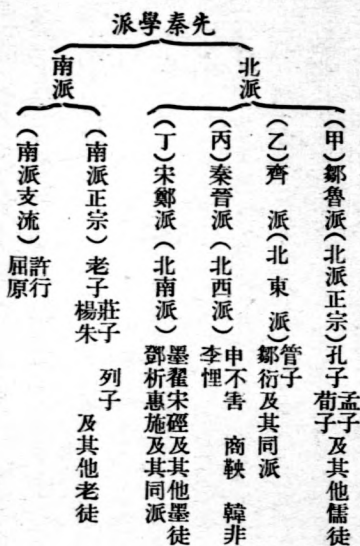 先秦學派
北派
南派
(甲)鄒魯派(北派正宗)孔子 孟子 荀子 及其他儒徒
(乙)齊派(北東派) 管子 鄒衍及其同派
(丙)秦晉派(北西派) 申不害 商鞅 韓非 李悝
(丁)宋鄭派(北南派) 墨翟宋硜及其他墨徒 鄧析惠施及其同派
(南派正宗)老子 莊子 列子 楊朱 及其他老徒
(南派支流) 許行 屈原